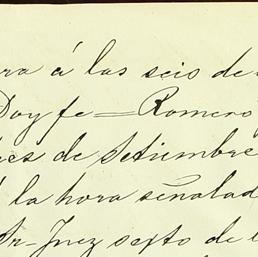 ra á las seis de
Doy fe = Romero
res de Setiembre
á la hora señalad
Sr. Juez sexto de